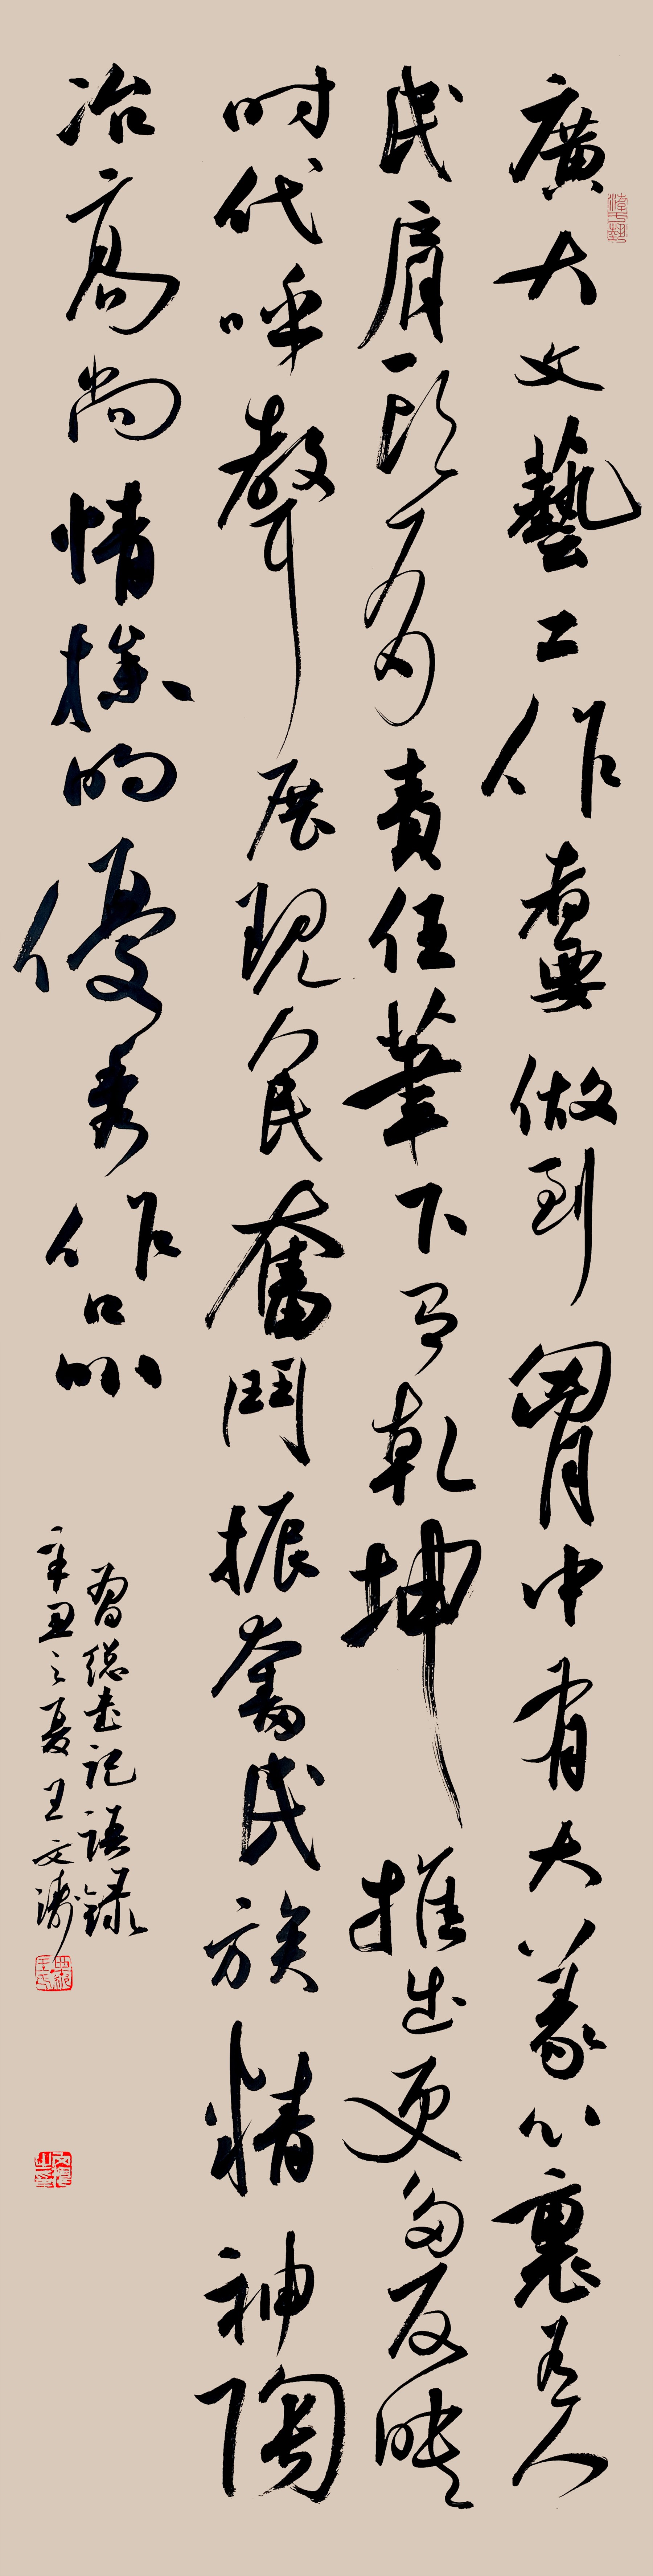 廣大文藝工作者要做到胸中有大義心裏有人
民肩頭有責任筆下有乾坤推出更多反映
时代呼聲展現人民奮鬥振奮民族精神陶
冶高尚情操的優秀作品
習總書記語録
辛丑之夏王文濤